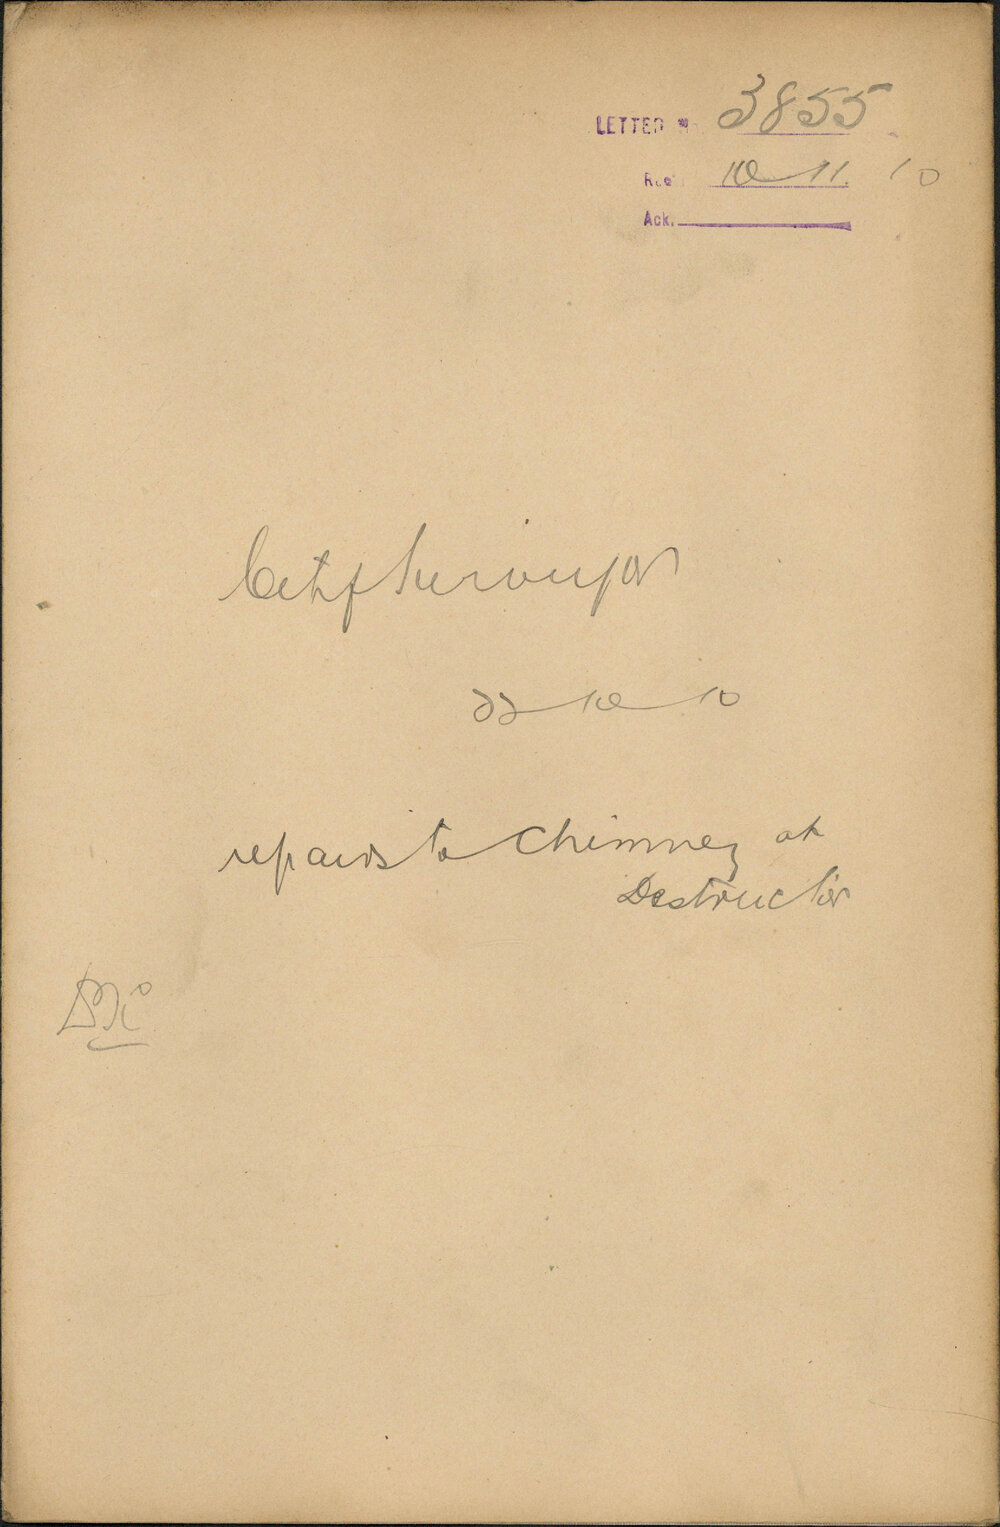 LETTER No. 3855
Rec'd 10 11. 10
Ack.
City Surveyor
22 10 10
repairs to Chimney at
Destructor